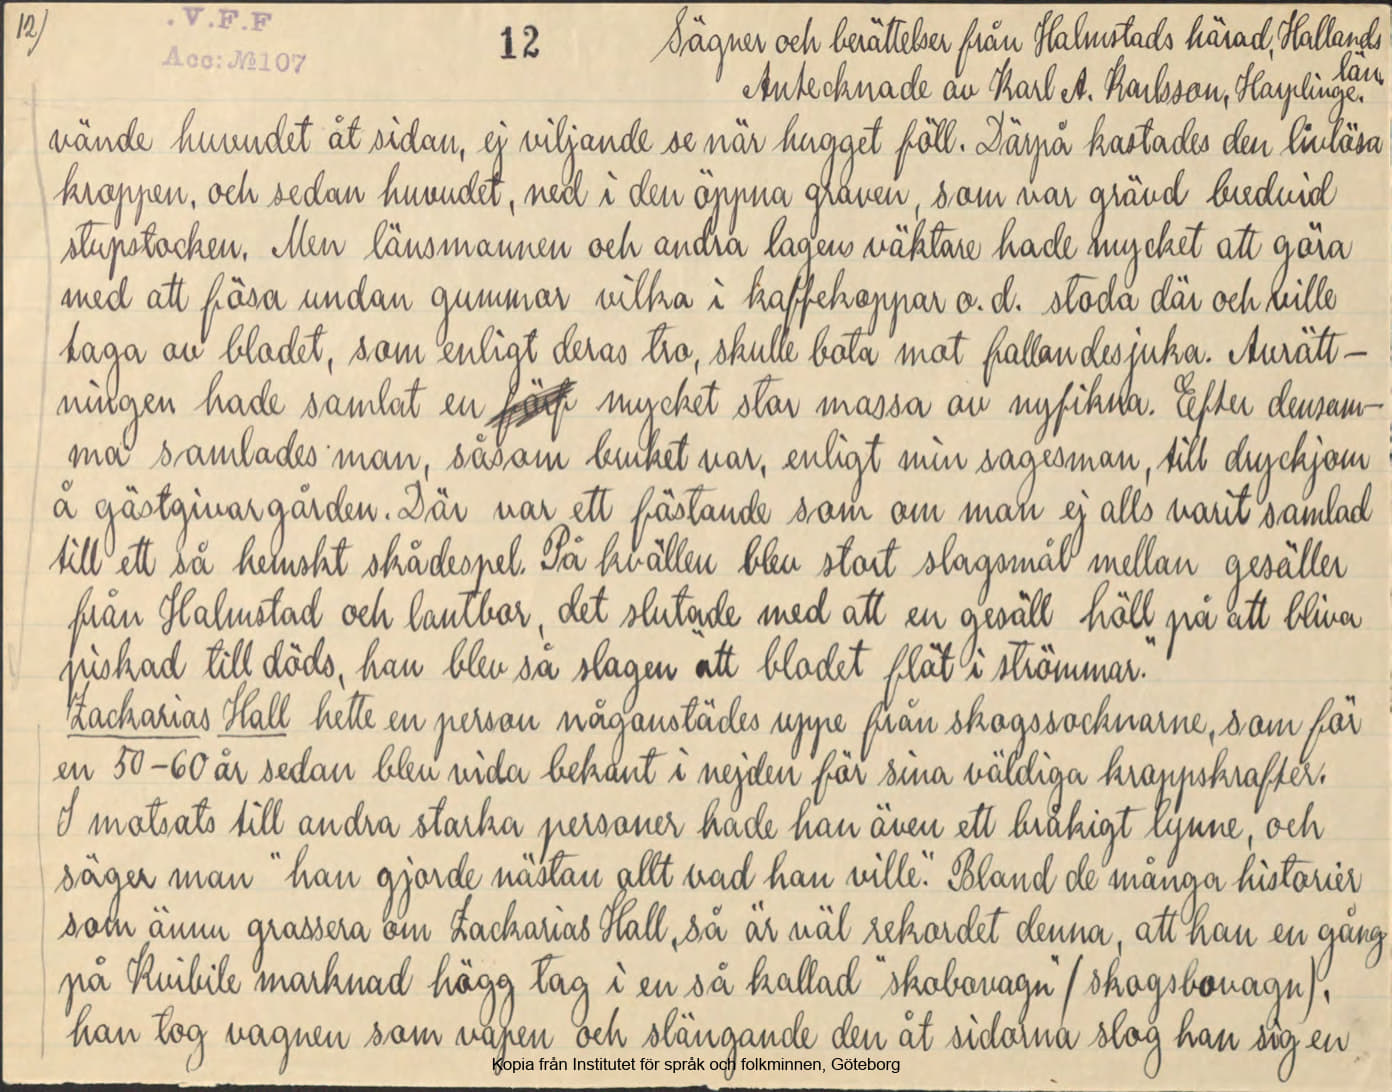 12)
.V.F.F
Acc: № 107
12
Sägner och berättelser från Halmstads härad, Hallands
län.
Antecknade av Karl A. Karlsson, Harplinge.
vände huvudet åt sidan, ej viljande se när hugget föll. Därpå kastades den livlösa
kroppen, och sedan huvudet, ned i den öppna graven, som var grävd bredvid
stupstocken. Men länsmannen och andra lagens väktare hade mycket att göra
med att fösa undan gummor vilka i kaffekoppar o.d. stodo där och ville
taga av blodet, som enligt deras tro, skulle bota mot fallandesjuka. Avrätt-
ningen hade samlat en mycket stor massa av nyfikna. Efter densam-
ma samlades man, såsom bruket var, enligt min sagesman, till dryckjom
å gästgivargården. Där var ett fästande som om man ej alls varit samlad
till ett så hemskt skådespel. På kvällen blev stort slagsmål mellan gesäller
från Halmstad och lantbor, det slutade med att en gesäll höll på att bliva
piskad till döds, han blev så slagen "att blodet flöt i strömmar."
Zackarias Hall hette en person någonstädes uppe från skogssocknarne, som för
en 50-60 år sedan blev vida bekant i nejden för sina väldiga kroppskrafter.
I motsats till andra starka personer hade han även ett bråkigt lynne, och
säger man "han gjorde nästan allt vad han ville". Bland de många historier
som ännu grassera om Zackarias Hall, så är väl rekordet denna, att han en gång
på Kvibile marknad högg tag i en så kallad "skobovagn" (skogsbovagn),
han tog vagnen som vapen och slängande den åt sidorna slog han sig en
Kopia från Institutet för språk och folkminnen, Göteborg